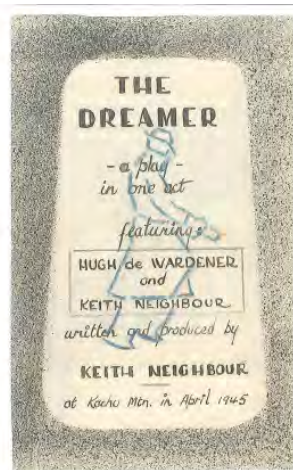 THE
DREAMER
- a play -
in one act
featuring:
HUGH de WARDENER
and
KEITH NEIGHBOUR
written and produced by
KEITH NEIGHBOUR
at Kachu Mtn. in April 1945